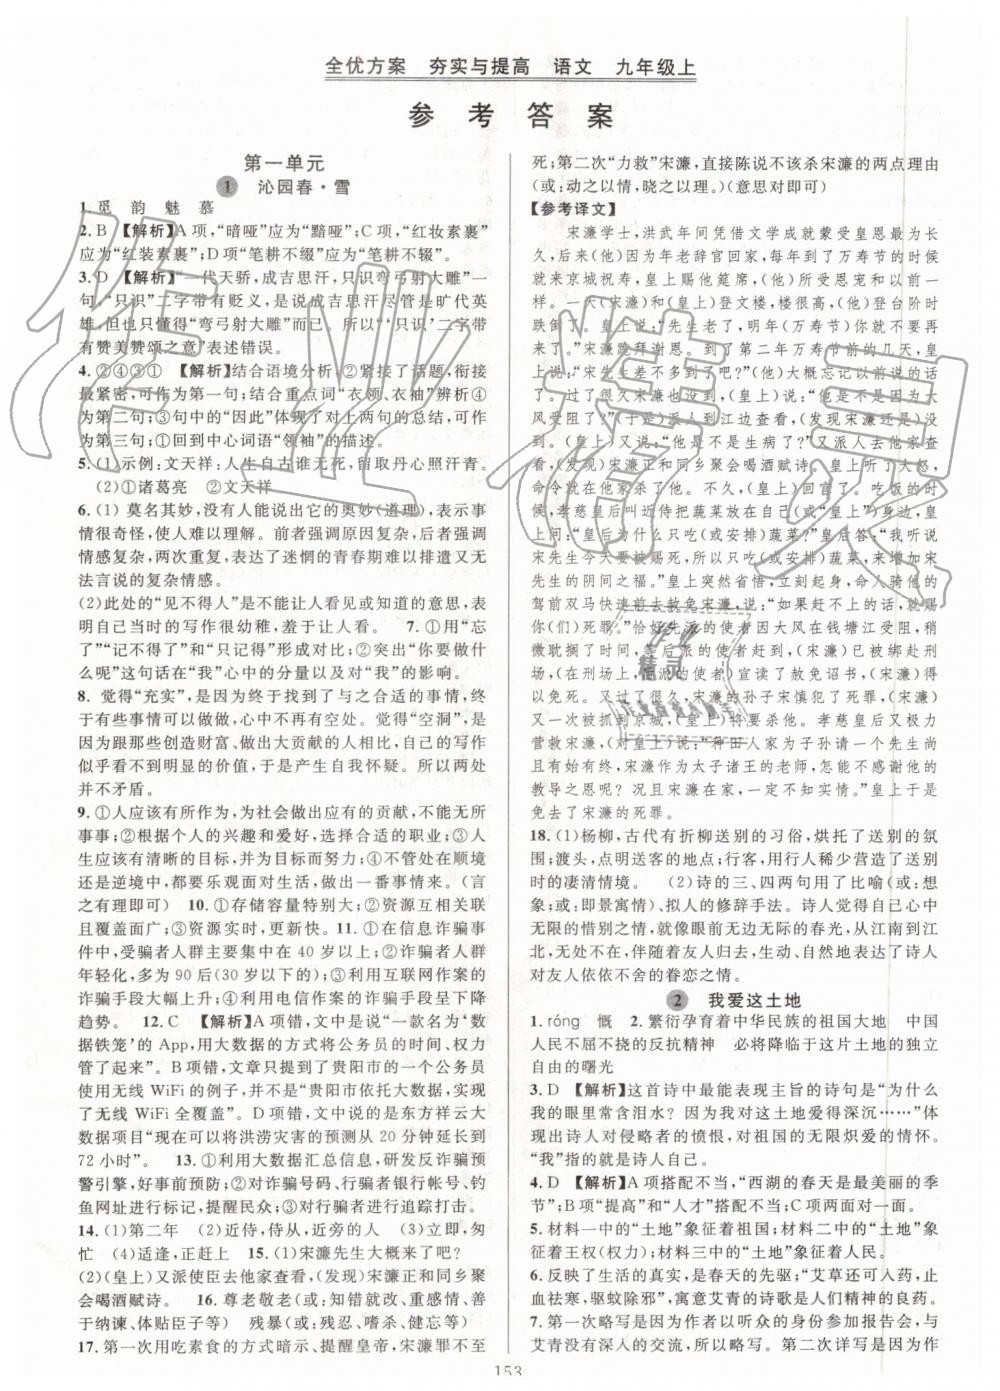 全优方案 夯实与提高 语文 九年级上
参考答案
第一单元
1 沁园春·雪
1.觅 韵 魅 慕
2.B 【解析】A项,“暗哑”应为“黯哑”;C项,“红妆素裹”
应为“红装素裹”;D项“笔耕不缀”应为“笔耕不辍”。
3.D 【解析】“一代天骄,成吉思汗,只识弯弓射大雕”一
句,“只识”二字带有贬义,是说成吉思汗尽管是旷代英
雄,但也不过只懂得“弯弓射大雕”而已。所以“‘只识’二字带
有赞美赞颂之意”表述错误。
4.②④③① 【解析】结合语境分析,②紧接了话题,衔接
最紧密,可作为第一句;结合重点词“衣领、衣袖”辨析④
为第二句;③句中的“因此”体现了对上两句的总结,可作
为第三句;①回到中心词语“领袖”的描述。
5.(1)示例:文天祥:人生自古谁无死,留取丹心照汗青。
(2)①诸葛亮 ②文天祥
6.(1)莫名其妙,没有人能说出它的奥妙(道理),表示事
情很奇怪,使人难以理解。前者强调原因复杂,后者强调
情感复杂,两次重复,表达了迷惘的青春期难以排遣又无
法言说的复杂情感。
(2)此处的“见不得人”是不能让人看见或知道的意思,表
明自己当时的写作很幼稚,羞于让人看。 7.①用“忘
了”“记不得了”和“只记得”形成对比;②突出“你要做什
么呢”这句话在“我”心中的分量以及对“我”的影响。
8.觉得“充实”,是因为终于找到了与之合适的事情,
于有些事情可以做做,心中不再有欠缺。觉得“空洞”,是
因为跟那些创造财富、做出大贡献的人相比,自己的写作
似乎看不到明显的价值,于是产生自我怀疑。所以两处
并不矛盾。
9.①人应该有所作为,为社会做出应有的贡献,不能无所
事事;②根据个人的兴趣和爱好,选择合适的职业;③人
生应该有清晰的目标,并为目标而努力;④不管处在顺境
还是逆境中,都要乐观面对生活,做出一番事情来。(言
之有理即可) 10.①存储容量特别大;②资源互相关联
且覆盖面广;③资源实时,更新快。 11.①在信息诈骗事
件中,受骗者人群主要集中在40岁以上;②诈骗者人群
年轻化,多为90后(30岁以下);③利用互联网作案的
诈骗手段大幅上升;④利用电信作案的诈骗手段呈下降
趋势。 12.C 【解析】A项错,文中是说“一款名为‘数
据铁笼’的App,用大数据的方式将公务员的时间、权力
管了起来”。B项错,文章只提到了贵阳市的一个公务员
使用无线WiFi的例子,并不是“贵阳市依托大数据,实现
了无线WiFi全覆盖”。D项错,文中说的是东方祥云大
数据项目“现在可以将洪涝灾害的预测从20分钟延长到
72小时”。 13.①利用大数据汇总信息,研发反诈骗预
警引擎,好事前预防;②对诈骗号码、行骗者银行帐号、钓
鱼网址进行数据共享,提醒民众;③对行骗者进行追踪打击。
14.(1)第二年 (2)近侍,侍从,近旁的人 (3)立即,匆
忙 (4)适逢,正赶上 15.(1)宋濂先生大概来了吧?
(2)(皇上)又派使臣去他家查看,(发现)宋濂正和同乡聚
会喝酒赋诗。 16.尊老敬老(或:知错就改、重感情、善
于纳谏、体贴臣子等) 残暴(或:残忍、嗜杀、健忘等)
17.第一次用吃素食的方式暗示、提醒皇帝,宋濂罪不至
死;第二次“力救”宋濂,直接陈说不该杀宋濂的两点理由
(或:动之以情,晓之以理。)(意思对即可)
【参考译文】
宋濂学士,洪武年间凭借文学成就蒙受皇恩最为长
久,后来因为年老辞官回家,每年到了万寿节的时候
就来京城祝寿,皇上赐他筵席,(他)所受恩宠一如从
前。一天(宋濂)与(皇上)登文楼,楼很高,(他)登台阶时
跌倒了。皇上说:“先生老了,明年(万寿节)就不要再
来了。”宋濂跪拜谢恩。到了第二年万寿节前的几天,皇
上说:“宋先生差不多到了吧?”(他)大概忘记以前说的话
了。过了很久宋濂也没到,(皇上)说:“他是不是因为大
风受阻了?”(于是)派人到江边查看,(发现宋濂还是)没
到。(皇上)又说:“他是不是生病了?”又派人去他家查
看,(发现)宋濂正和同乡聚会喝酒赋诗。皇上听了大怒,
命令就在他家杀了他。不久,(皇上)回宫了。吃饭的时
候,孝慈皇后叫近侍把蔬菜放在自己(或皇上)面前。皇
上问:“皇后为什么只吃(或安排)蔬菜?”皇后答:“我听说
宋先生今天要被赐死,所以只吃(或安排)蔬菜,来增加宋
先生的阴间万福。”皇上突然省悟,立刻起来,命人用他的
驾前双马快速前去赦免宋濂,说:“如果赶不上的话,就赐
你(们)死罪。”恰好先派的使者因大风在钱塘江受阻,稍
微耽搁了一下,等后派的使者赶到,(宋濂)已被绑赴刑
场,(在刑场上,后派的使者)宣读了赦免诏书,(宋濂)才
没死。又过了很久,宋濂的孙子宋慎犯了死罪,(宋濂)又
一次被抓到京城,(皇上)将要杀他。孝慈皇后又极力
营救宋濂,(对皇上)说:“种田人家为子孙请一个先生尚
且有以礼相待,宋濂作为太子诸王的老师,怎能忘他的
教导之恩呢?况且宋濂在家,一定不知实情。”于是皇上
免了宋濂的死罪。
18.(1)杨柳,古代有折柳送别的习俗,烘托了送别的氛
围;渡头,点明送客的地点;行客,用行人稀少营造了送别
时的凄清情境。 (2)诗的三、四两句用了比喻(或:想
象;或:即景寓情)、拟人的修辞手法。诗人觉得自己心中
无限的惜别情,就像眼前无边无际的春光,从江南到江
北,无处不在,伴随着友人归去,生动、自然地表达了诗人
对友人依依不舍的眷恋之情。
2 我爱这土地
1.róng 慨 2.繁衍孕育着中华民族的祖国大地 中国
人民不屈不挠的反抗精神 必将降临于这片土地的独立
自由的曙光
3.D 【解析】这首诗中最能表现主旨的诗句是“为什么
我的眼里常含泪水?因为我对这土地爱得深沉……”体
现出诗人对侵略者的愤恨,对祖国的无限炽爱的情怀。
“我”指的就是诗人自己。
4.D 【解析】A项搭配不当,“西湖的春天是最美丽的季
节”;B项“提高”和“人才”搭配不当;C项两面对一面。
5.材料一中的“土地”象征着祖国;材料二中的“土地”象
征着王位(权力);材料三中的“土地”象征着人民。
6.反映了生活的真实,是春天的先驱;“艾草还可入药,止
血祛寒,驱蚊除邪”,寓意艾青的诗歌是人们精神的良药。
7.第一次略写是因为作者以听众的身份参加报告会,与
艾青没有深入的交流,所以略写。第二次详写是因为作
153